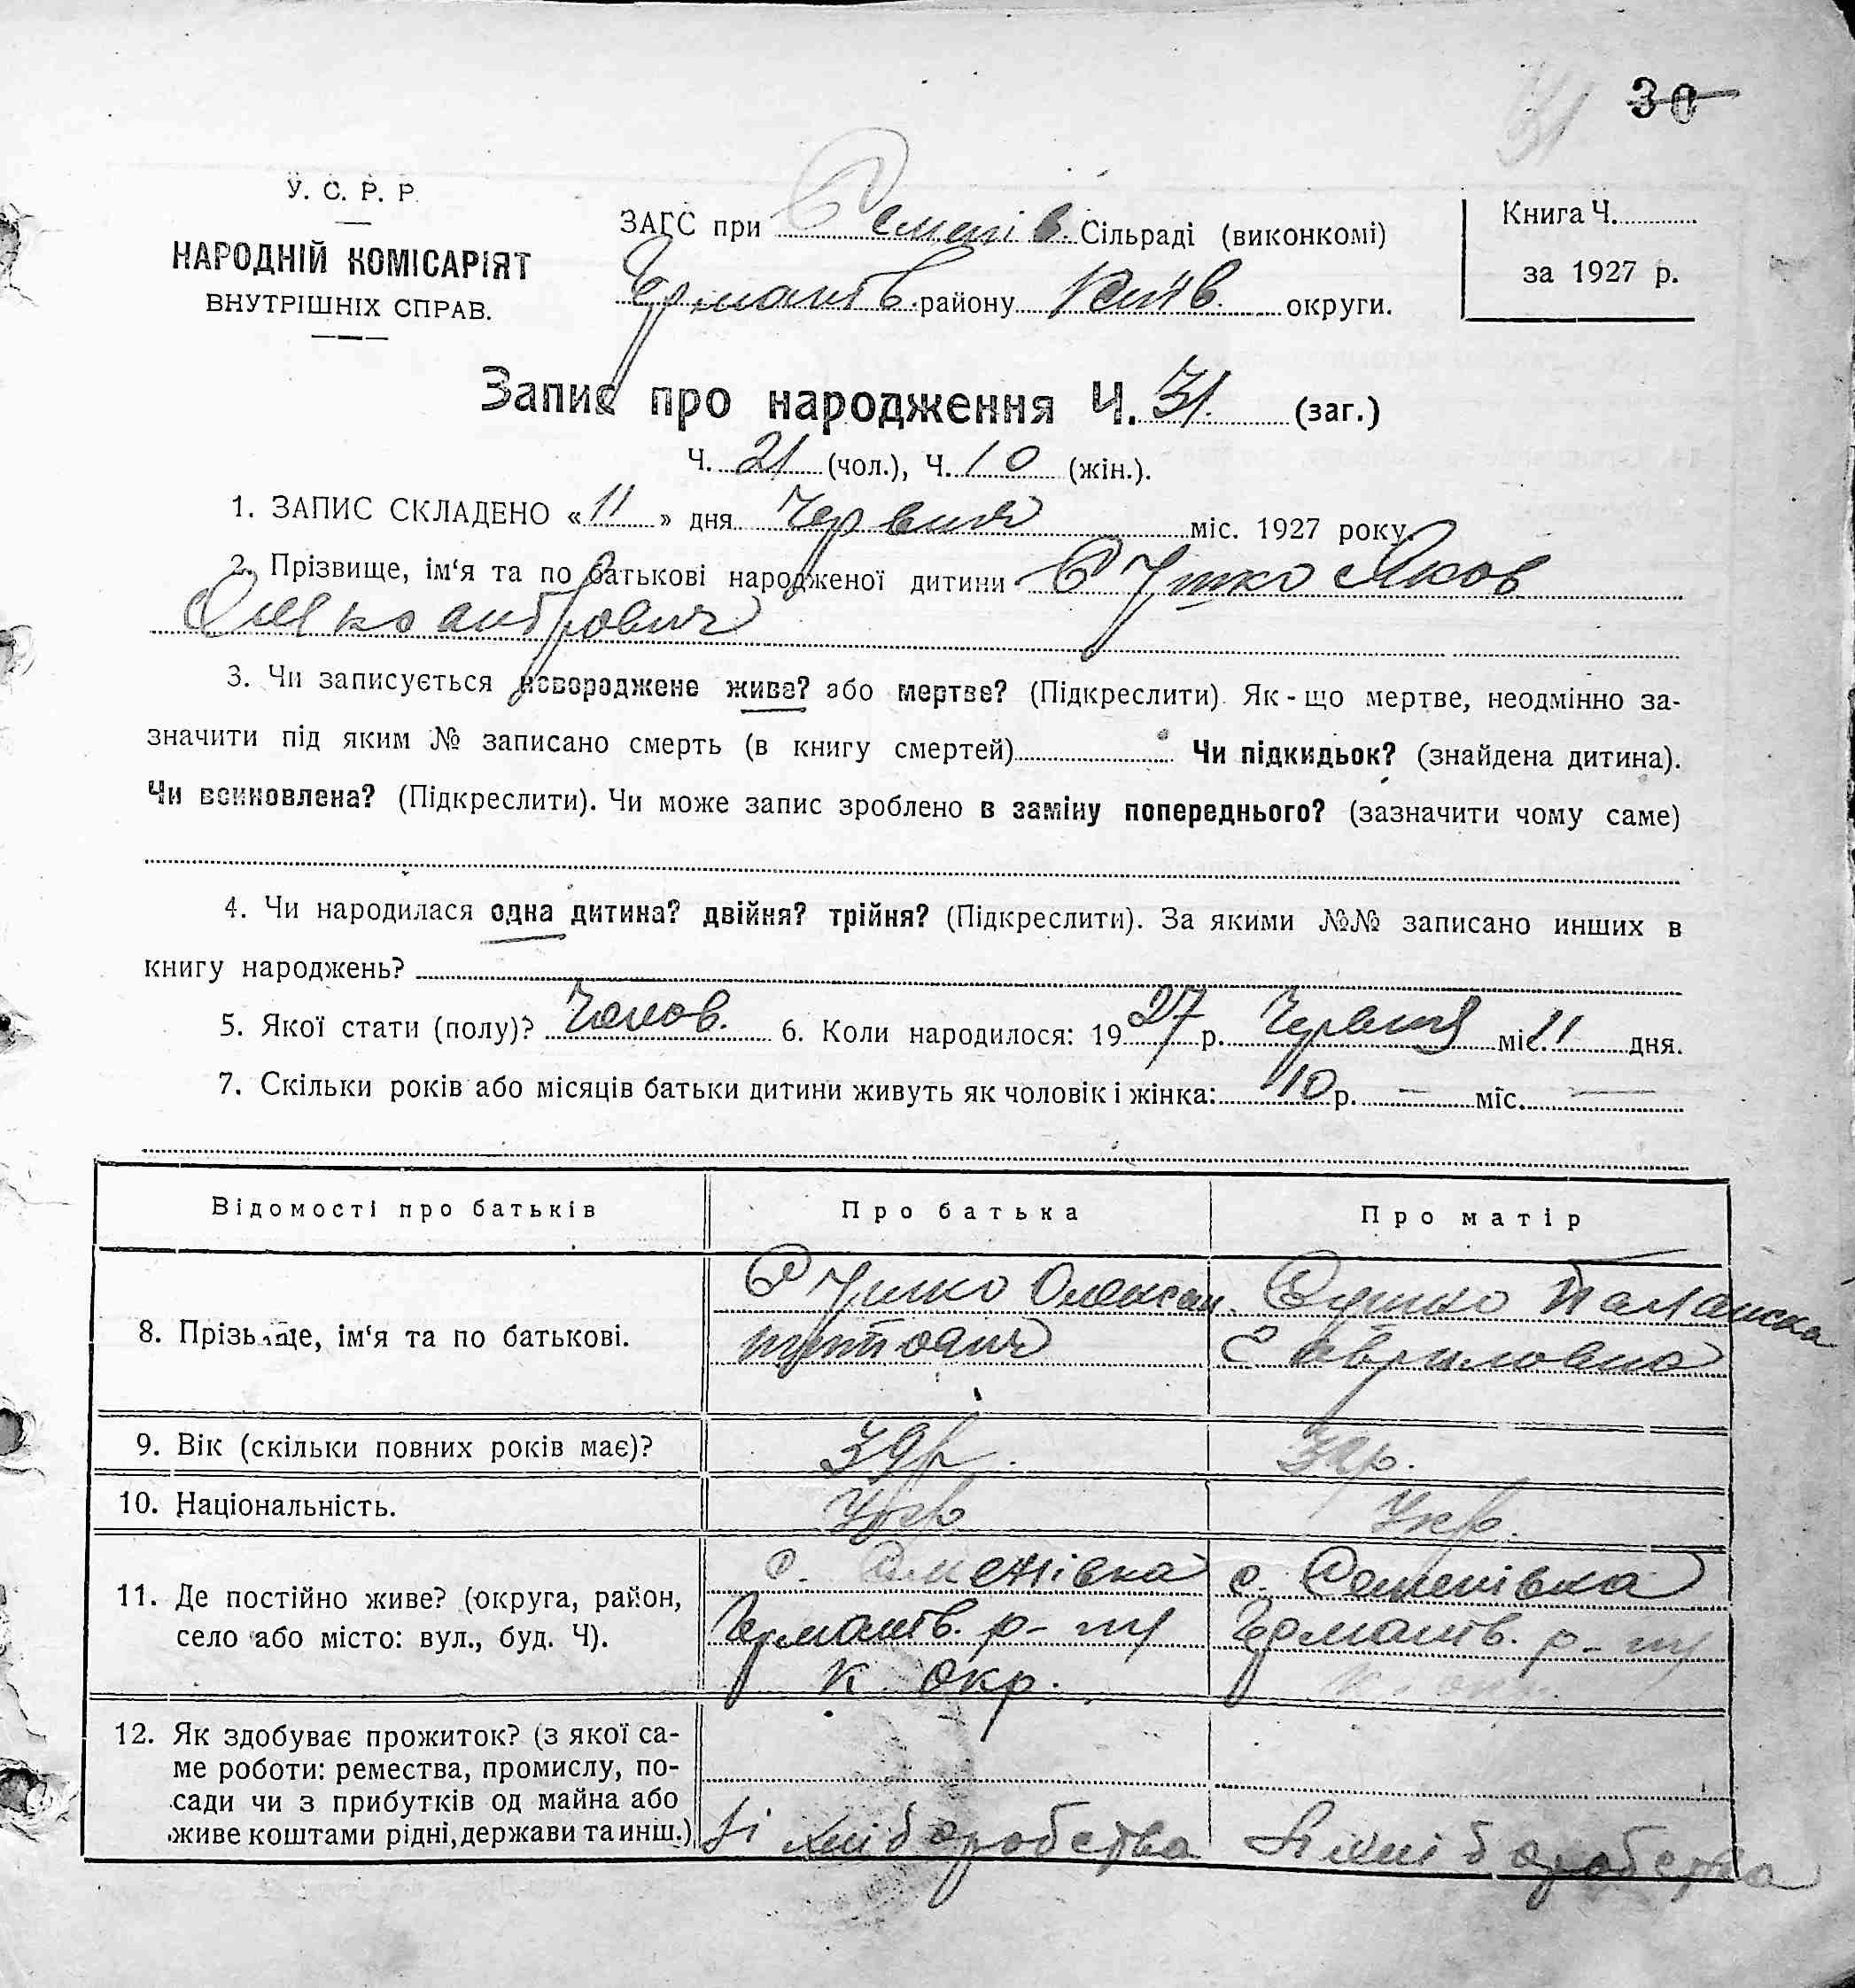 30
31
У. С. Р. Р.
НАРОДНІЙ КОМІСАРІЯТ
ВНУТРІШНІХ СПРАВ.
ЗАГС при Семенів. Сільраді (виконкомі)
району Київ. округи.
Книга Ч.
за 1927 р.
Запис про народження Ч. 31. (заг.)
Ч. 21 (чол.), Ч. 10 (жін.).
1. ЗАПИС СКЛАДЕНО «11» дня Червня міс. 1927 року.
2. Прізвище, ім‘я та по батькові народженої дитини Сушко Яков
Олександрович
3. Чи записується новороджене живе? або мертве? (Підкреслити). Як-що мертве, неодмінно за-
значити під яким № записано смерть (в книгу смертей) Чи підкидьок? (знайдена дитина).
Чи всиновлена? (Підкреслити). Чи може запис зроблено в заміну попереднього? (зазначити чому саме)
4. Чи народилася одна дитина? двійня? трійня? (Підкреслити). За якими №№ записано инших в
книгу народжень?
5. Якої стати (полу)? Чолов. 6. Коли народилося: 1927 р. Червня міс. 11 дня.
7. Скільки років або місяців батьки дитини живуть як чоловік і жінка: 10 р. — міс. —
Відомості про батьків Про батька Про матір
8. Прізвище, ім‘я та по батькові.
Сушко Олексан.
Сушко
Гавриловна
9. Вік (скільки повних років має)? 39 р.
10. Національність. Укр. Укр.
11. Де постійно живе? (округа, район,
село або місто: вул., буд. Ч).
с. Семенівка
р-ну
К окр.
с. Семенівка
р-ну
К. окр.
12. Як здобуває прожиток? (з якої са-
ме роботи: ремества, промислу, по-
сади чи з прибутків од майна або
живе коштами рідні, держави та инш.)
Зі хліборобства
Зі хліборобства